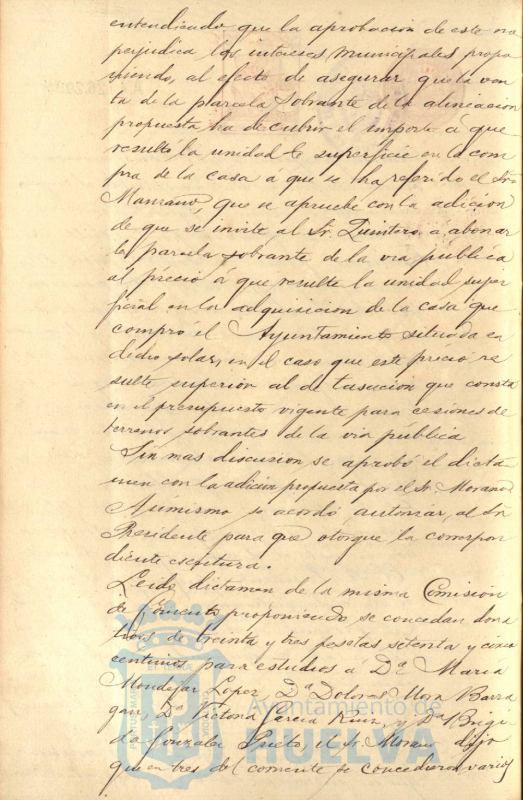 entendiendo que la aprobacion de este no
perjudica los intereses municipales propo
niendo, al efecto de asegurar que la ven
ta de la parcela sobrante de la alineacion
propuesta ha de cubrir el importe á que
resulte la unidad de superficie en la com
pra de la casa á que se ha referido el Sr.
Manzano, que se apruebe con la adición
de que se invite al Sr. Quintero á abonar
la parcela sobrante de la via pública
al precio á que resulte la unidad super
ficial en la adquisicion de la casa que
compro el Ayuntamiento situada en
dicho solar, en el caso que este precio re
sulte superior al de tasacion que consta
en el presupuesto vigente para cesiones de
terrenos sobrantes de la via pública
Sin mas discusion se aprobó el dicta
men con la adicion propuesta por el Sr. Morano
Asimismo se acordó autorizar al Sr
Presidente para que otorgue la correspon
diente escritura.
Leido dictamen de la misma Comisión
de Fomento proponiendo se concedan dona
tivos de treinta y tres pesetas setenta y cinco
centimos para estudios a Dª María
Mondejar Lopez, Dª Dolores Mora Barra
gan, Dª Victoria Garcia Ruiz, y Dª Brigi
da Gonzalez Prieto, el Sr. Morano dijo
que en tres de Corriente se concedieron varios
Ayuntamiento de
HUELVA